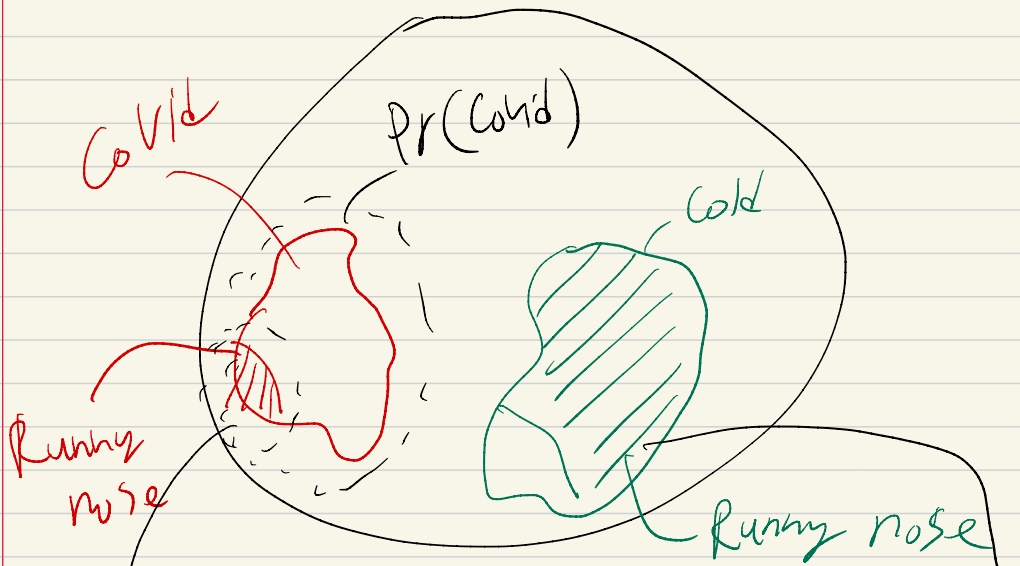 CoVid
Pr(Covid)
Cold
Runny
nose
Runny nose